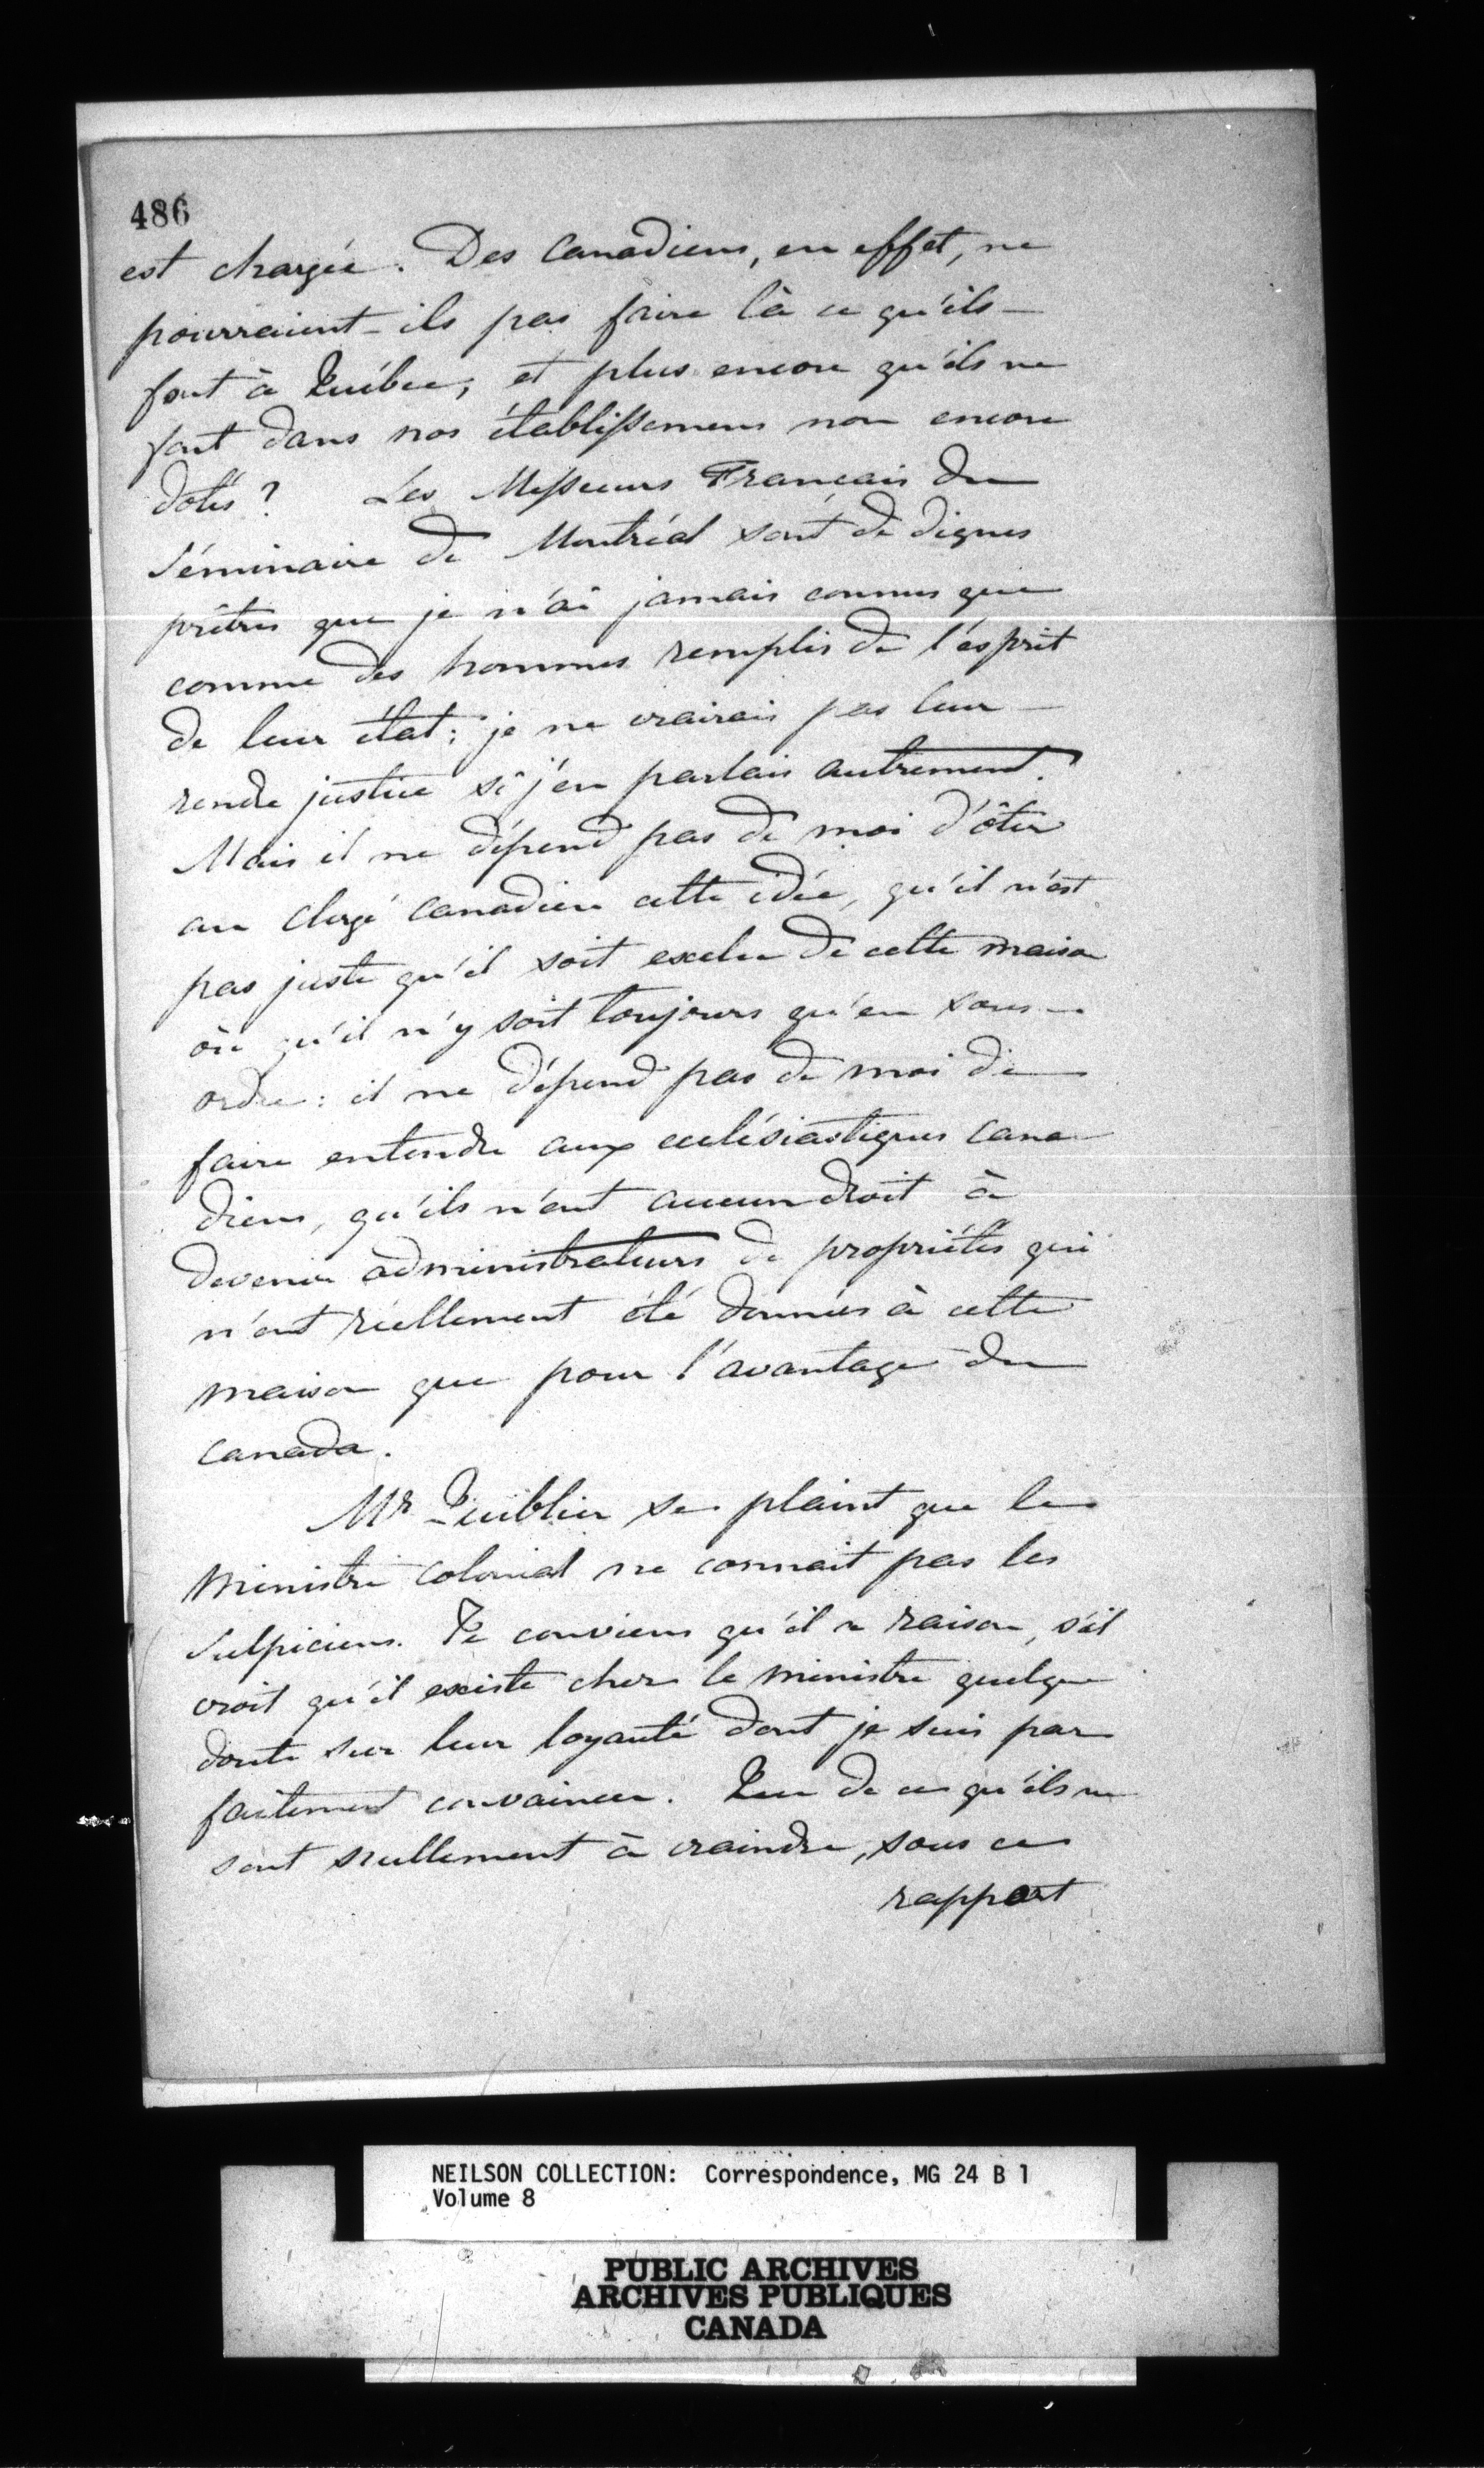 486
est chargée. Des Canadiens, en effet, ne
pourraient-ils pas faire là ce qu'ils
font à Québec, et plus encore qu'ils ne
font dans nos établissemens non encore
dotés? Les Messieurs Français du
Séminaire de Montréal sont de dignes
prêtres que je n'ai jamais connus que
comme des hommes remplis de l'esprit
de leur état; je ne croirais pas leur
rendre justice si j'en parlais autrement.
Mais il ne dépend pas de moi d'ôter
au clergé Canadien cette idée, qu'il n'est
pas juste qu'il soit exclu de cette maison
où qu'il n'y soit toujours qu'en sous-
ordre: il ne dépend pas de moi de
faire entendre aux ecclésiastiques cana
diens, qu'ils n'ont aucun droit à
devenir administrateurs de propriétés qui
n'ont réellement été données à cette
maison que pour l'avantage du
Canada.
Mr Quiblier se plaint que le
Ministre Colonial ne connait pas les
Sulpiciens. Je conviens qu'il a raison, s'il
croit qu'il existe chez le Ministre quelque
doute sur leur loyauté dont je suis par
faitement convaincu. Que de ce qu'ils ne
sont nullement à craindre, sous ce
rapport
NEILSON COLLECTION: Correspondence, MG 24 B 1
Volume 8
PUBLIC ARCHIVES
ARCHIVES PUBLIQUES
CANADA